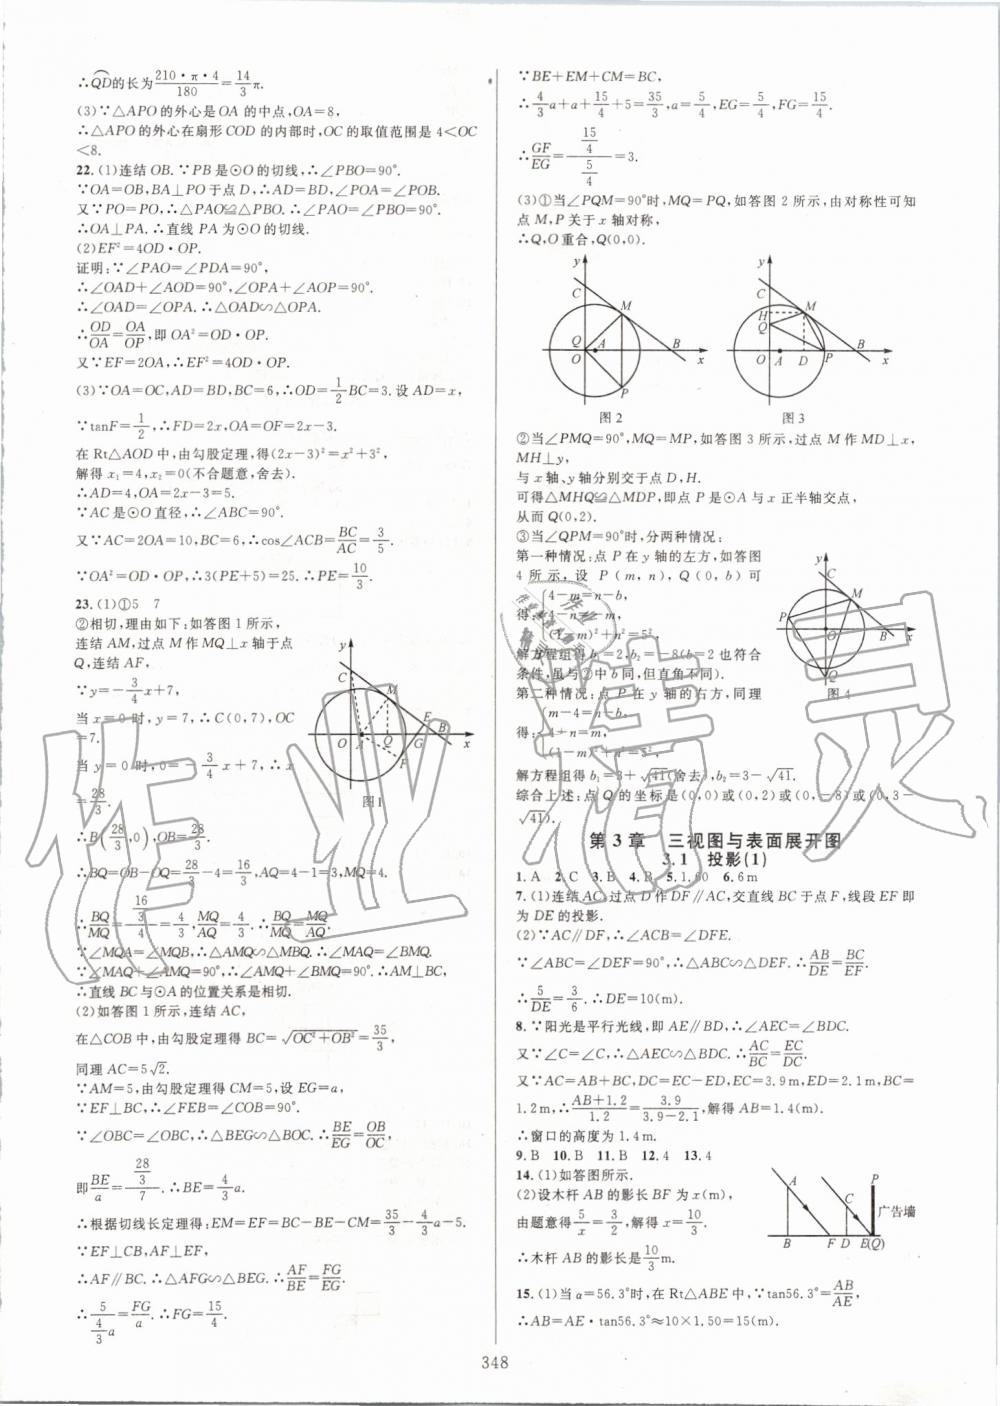 ∴QD的长为210·π·4/180=14/3π.
(3)∵△APO的外心是OA的中点,OA=8,
∴△APO的外心在扇形COD的内部时,OC的取值范围是4<OC
<8.
22.(1)连结OB.∵PB是⊙O的切线,∴∠PBO=90°.
∵OA=OB,BA⊥PO于点D,∴AD=BD,∠POA=∠POB.
又∵PO=PO,∴△PAO≌△PBO.∴∠PAO=∠PBO=90°.
∴OA⊥PA.∴直线PA为⊙O的切线.
(2)EF²=4OD·OP.
证明:∵∠PAO=∠PDA=90°,
∴∠OAD+∠AOD=90°,∠OPA+∠AOP=90°.
∴∠OAD=∠OPA.∴△OAD∽△OPA.
∴OD/OA=OA/OP,即OA²=OD·OP.
又∵EF=2OA,∴EF²=4OD·OP.
(3)∵OA=OC,AD=BD,BC=6,∴OD=1/2BC=3.设AD=x,
∵tanF=1/2,∴FD=2x,OA=OF=2x-3.
在Rt△AOD中,由勾股定理,得(2x-3)²=x²+3²,
解得x₁=4,x₂=0(不合题意,舍去).
∴AD=4,OA=2x-3=5.
∵AC是⊙O直径,∴∠ABC=90°.
又∵AC=2OA=10,BC=6,∴cos∠ACB=BC/AC=3/5.
∵OA²=OD·OP,∴3(PE+5)=25.∴PE=10/3.
23.(1)①5 7
②相切,理由如下:如答图1所示,
连结AM,过点M作MQ⊥x轴于点
Q,连结AF,
∵y=-3/4x+7,
当x=0时,y=7,∴C(0,7),OC
=7.
当y=0时,0=-3/4x+7,∴x
=28/3.
∴B(28/3,0),OB=28/3.
∴BQ=OB-OQ=28/3-4=16/3,AQ=4-1=3,MQ=4.
∴BQ/MQ=16/3/4=4/3,MQ/AQ=4/3.∴BQ/MQ=MQ/AQ.
∵∠MQA=∠MQB,∴△AMQ∽△MBQ.∴∠MAQ=∠BMQ.
∵∠MAQ+∠AMQ=90°,∴∠AMQ+∠BMQ=90°.∴AM⊥BC,
∴直线BC与⊙A的位置关系是相切.
(2)如答图1所示,连结AC,
在△COB中,由勾股定理得BC=√(OC²+OB²)=35/3,
同理AC=5√2.
∵AM=5,由勾股定理得CM=5,设EG=a,
∵EF⊥BC,∴∠FEB=∠COB=90°.
∵∠OBC=∠OBC,∴△BEG∽△BOC.∴BE/EG=OB/OC,
即BE/a=28/3/7.∴BE=4/3a.
∴根据切线长定理得:EM=EF=BC-BE-CM=35/3-4/3a-5.
∵EF⊥CB,AF⊥EF,
∴AF∥BC.∴△AFG∽△BEG.∴AF/BE=FG/EG.
∴5/4/3a=FG/a.∴FG=15/4.
C
M
E
B
O
A
Q
G
x
F
图1
∵BE+EM+CM=BC,
∴4/3a+a+15/4+5=35/3,a=5/4,EG=5/4,FG=15/4.
∴GF/EG=15/4/5/4=3.
(3)①当∠PQM=90°时,MQ=PQ,如答图2所示,由对称性可知
点M,P关于x轴对称,
∴Q,O重合,Q(0,0).
y
C
M
Q
O
A
B
x
P
图2
y
C
H
M
Q
B
O
A
D
P
x
图3
②当∠PMQ=90°,MQ=MP,如答图3所示,过点M作MD⊥x,
MH⊥y,
与x轴、y轴分别交于点D,H.
可得△MHQ≌△MDP,即点P是⊙A与x正半轴交点,
从而Q(0,2).
③当∠QPM=90°时,分两种情况:
第一种情况:点P在y轴的左方,如答图
4所示,设P(m,n),Q(0,b)可
得:{4-m=n-b,
4-n=-m,
(1-m)²+n²=5².
解方程组得b₁=2,b₂=-8(b也符合
条件,虽与②中b同,但直角不同).
第二种情况:点P在y轴的右方,同理
得:{m-4=n-b,
4+n=m,
(1-m)²+n²=5²,
解方程组得b₁=3+√41(舍去),b₂=3-√41.
综合上述:点Q的坐标是(0,0)或(0,2)或(0,-8)或(0,3-
√41).
y
C
M
P
O
B
x
Q
图4
第3章 三视图与表面展开图
3.1 投影(1)
1.A 2.C 3.B 4.B 5.1.60 6.6m
7.(1)连结AC,过点D作DF∥AC,交直线BC于点F,线段EF即
为DE的投影.
(2)∵AC∥DF,∴∠ACB=∠DFE.
∵∠ABC=∠DEF=90°,∴△ABC∽△DEF.∴AB/DE=BC/EF.
∴5/DE=3/6.∴DE=10(m).
8.∵阳光是平行光线,即AE∥BD,∴∠AEC=∠BDC.
又∵∠C=∠C,∴△AEC∽△BDC.∴AC/BC=EC/DC.
又∵AC=AB+BC,DC=EC-ED,EC=3.9m,ED=2.1m,BC=
1.2m,∴AB+1.2/1.2=3.9/3.9-2.1,解得AB=1.4(m).
∴窗口的高度为1.4m.
9.B 10.B 11.B 12.4 13.4
14.(1)如答图所示.
(2)设木杆AB的影长BF为x(m),
由题意得5/x=3/2,解得x=10/3.
∴木杆AB的影长是10/3m.
A
C
P
广告墙
B
F
D
E(Q)
15.(1)当α=56.3°时,在Rt△ABE中,∵tan56.3°=AB/AE,
∴AB=AE·tan56.3°≈10×1.50=15(m).
348
作业精灵